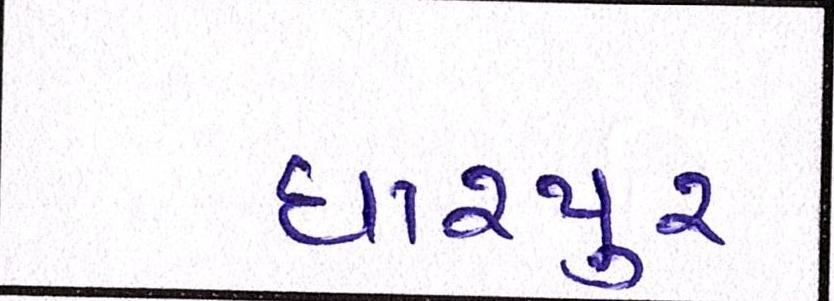 ધારપુર